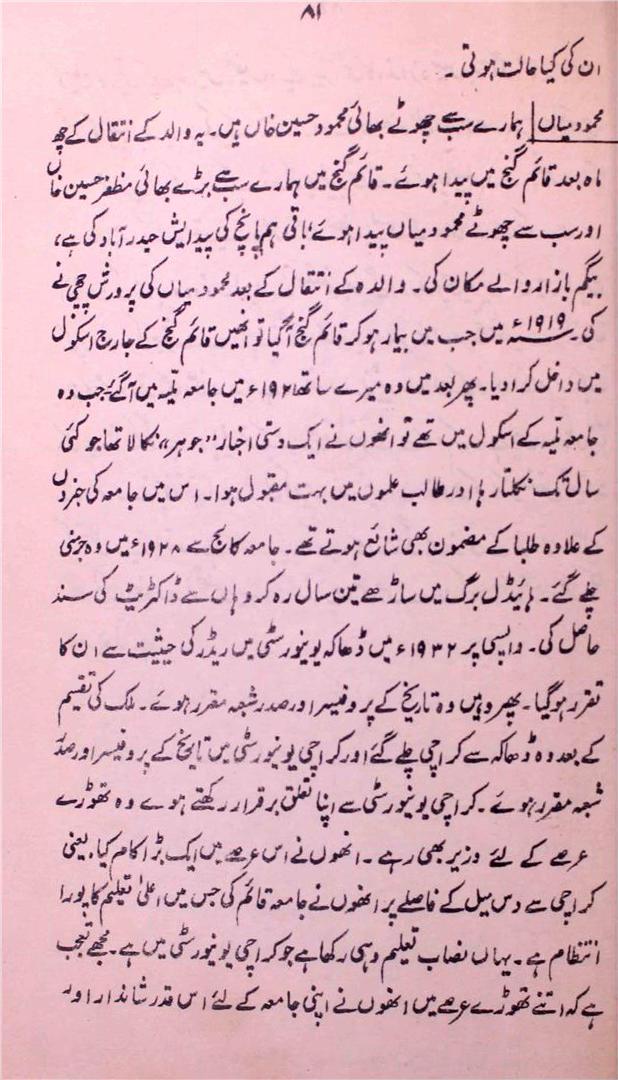 ۸۱
ان کی کیا حالت ہوتی ۔
محمود میاں ہمارے سب سے چھوٹے بھائی محمود حسین خاں ہیں۔ یہ والد کے انتقال کے چھ
ماہ بعد قائم گنج میں پیدا ہوئے۔ قائم گنج میں ہمارے سب سے بڑے بھائی مظفر حسین خاں
اور سب سے چھوٹے محمود میاں پیدا ہوئے، باقی ہم پانچ کی پیدایش حیدرآباد کی ہے،
بیگم بازار والے مکان کی۔ والدہ کے انتقال کے بعد محمود میاں کی پرورش چچی نے
کی۔ ۱۹۱۹ء میں جب میں بیمار ہو کر قائم گنج آ گیا تو انھیں قائم گنج کے جارج اسکول
میں داخل کرا دیا۔ پھر بعد میں وہ میرے ساتھ ۱۹۲۱ء میں جامعہ ملیہ میں آ گئے۔ جب وہ
جامعہ ملیہ کے اسکول میں تھے تو انھوں نے ایک دستی اخبار "جوہر" نکالا تھا جو کئی
سال تک نکلتا رہا اور طالب علموں میں بہت مقبول ہوا۔ اس میں جامعہ کی خبروں
کے علاوہ طلبا کے مضمون بھی شائع ہوتے تھے۔ جامعہ کالج سے ۱۹۲۸ء میں وہ جرمنی
چلے گئے۔ ہائیڈل برگ میں ساڑھے تین سال رہ کر وہاں سے ڈاکٹریٹ کی سند
حاصل کی۔ واپسی پر ۱۹۳۲ء میں ڈھاکہ یونیورسٹی میں ریڈر کی حیثیت سے ان کا
تقرر ہو گیا۔ پھر وہیں وہ تاریخ کے پروفیسر اور صدر شعبہ مقرر ہوئے۔ ملک کی تقسیم
کے بعد وہ ڈھاکہ سے کراچی چلے گئے اور کراچی یونیورسٹی میں تاریخ کے پروفیسر اور صدر
شعبہ مقرر ہوئے۔ کراچی یونیورسٹی سے اپنا تعلق برقرار رکھتے ہوے وہ تھوڑے
عرصے کے لئے وزیر بھی رہے ۔ انھوں نے اس عرصے میں ایک بڑا کام کیا، یعنی
کراچی سے دس میل کے فاصلے پر انھوں نے جامعہ قائم کی جس میں اعلیٰ تعلیم کا پورا
انتظام ہے ۔ یہاں نصاب تعلیم وہی رکھا ہے جو کراچی یونیورسٹی میں ہے۔ مجھے تعجب
ہے کہ اتنے تھوڑے عرصے میں انھوں نے اپنی جامعہ کے لئے اس قدر شاندار اور